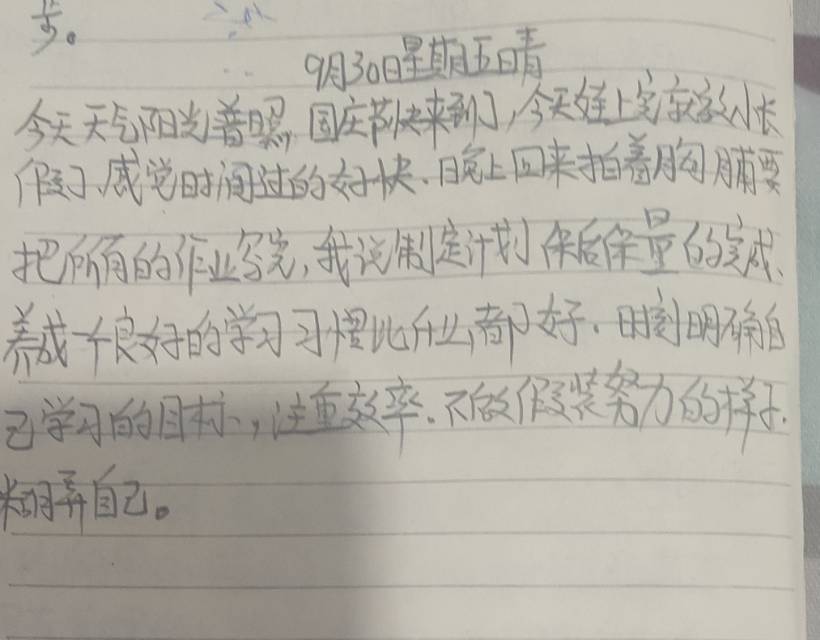 9月30日星期五晴
今天天气阳光普照,国庆节快来到了,今天娃上完就放小长
假了、感觉时间过的好快.日晚上回来拍着胸脯要
把所有的作业写完,我说制定计划保后保量的完成、
养成一个良好的学习习惯比什么都好.时刻明确自
己学习的目标,注重效率.不做假装努力的样子.
糊弄自己。